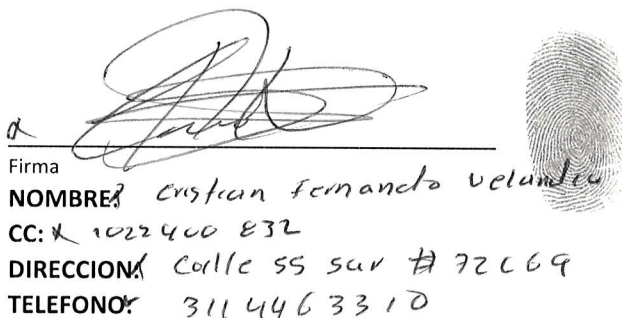 Firma
NOMBRE: Cristian Fernando Velandia
CC: 1022400 832
DIRECCION: Calle 55 sur # 72C69
TELEFONO: 3114463310